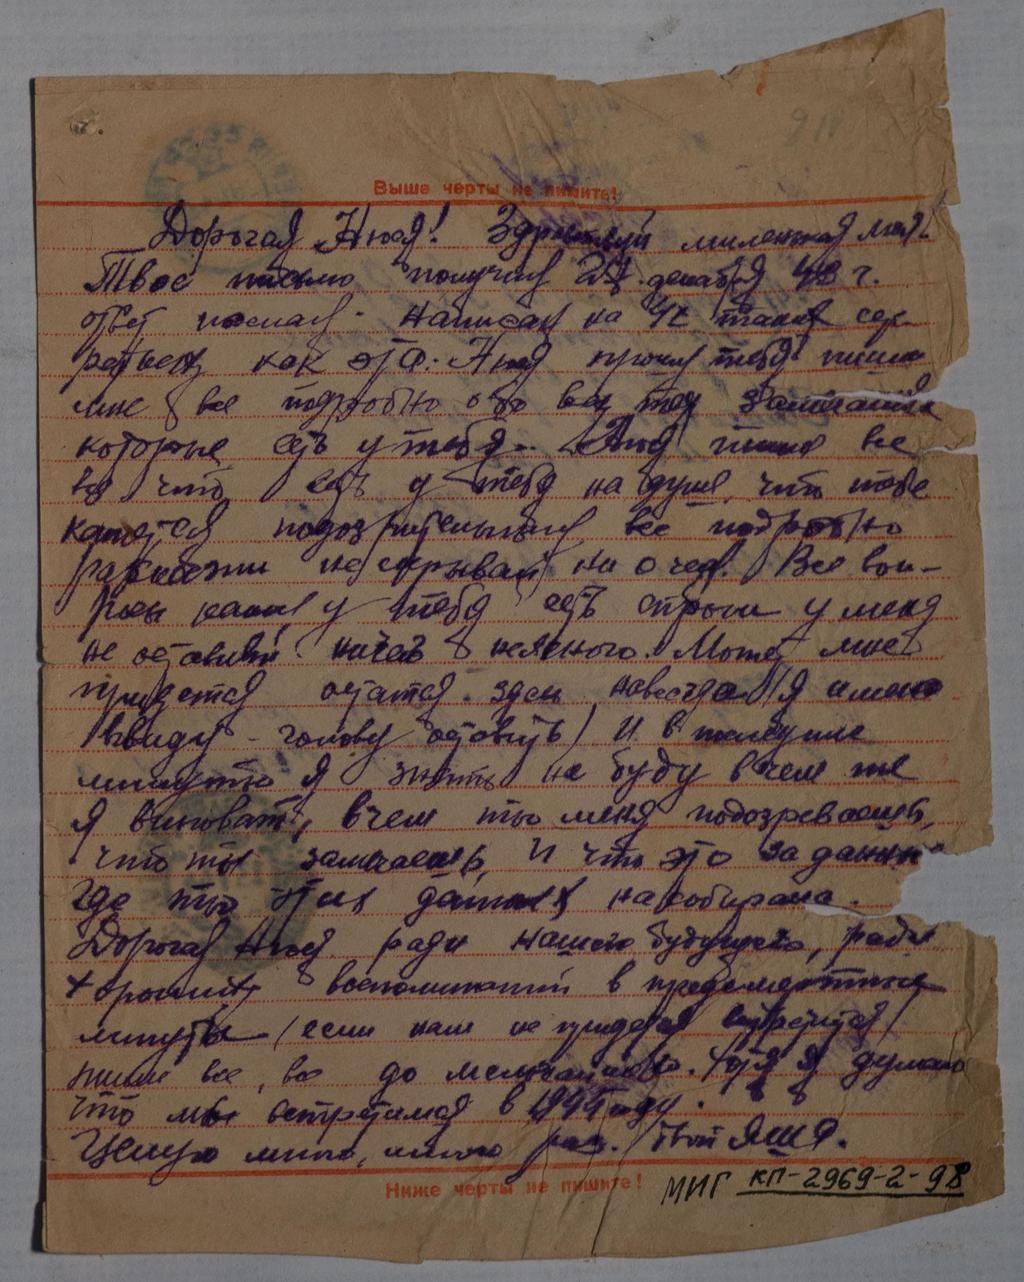 Выше черты не пишите!
Дорогая Нюся! Здраствуй миленькая моя!
Твое письмо получил 27 декабря 43 г.
ответ послал. Написал на 4х таких
как эта. Нюся прошу тебя пиши
мне все подробно обо всех тех замечаниях
которые есть у тебя. Нюся пиши все
то что есть у тебя на душе, что тебе
кажется подозрительным все подробно
расскажи не скрывай ни о чем. Все воп-
росы какие у тебя есть спроси у меня
не оставляй ничего неясного. Может мне
придется остатся здесь навсегда (я имею
ввиду - голову оставить) И в последние
минуты я знать не буду в чем же
я виноват, в чем ты меня подозреваешь,
что ты замечаешь, И что это за данные
Где ты этих данных насобирала.
Дорогая Нюся ради нашего будущего, ради
хороших воспоминаний в предсмертные
минуты (если нам не придется встретится)
пиши все, все до мелочей. Хотя я думаю
что мы встретимся в 1944 году.
Целую много, много раз. Твой Яша.
Ниже черты не пишите!
МИГ КП-2969-2-98